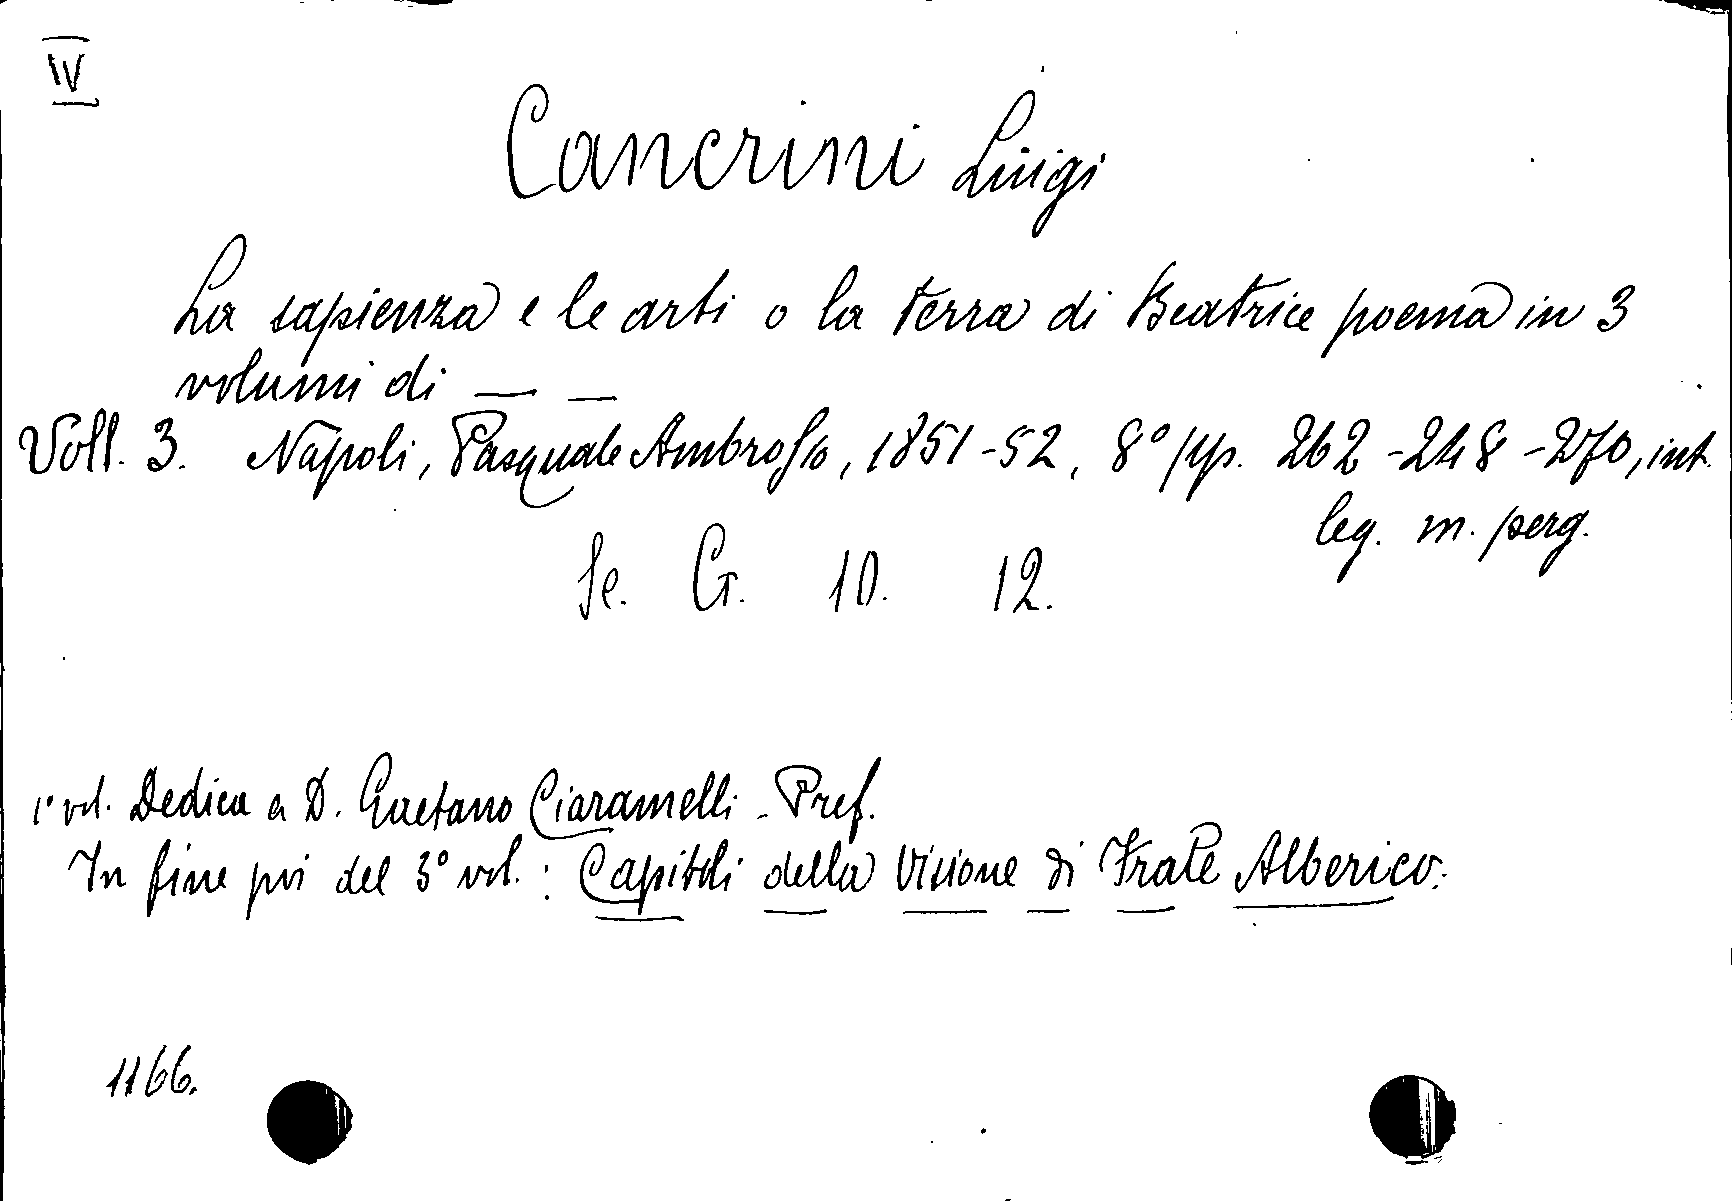 IV
Cancrini Luigi
La sapienza e le arti o la terra di Beatrice poema in 3
volumi di — —
Voll. 3. Napoli, Pasquale Ambrosio, 1851-52, 8° pp. 262-248-270, int.
leg. m. perg.
Se. G. 10. 12.
1° vol. Dedica a D. Gaetano Ciaramelli - Pref.
In fine poi del 3° vol.: Capitoli della Visione di Frate Alberico.
1166.